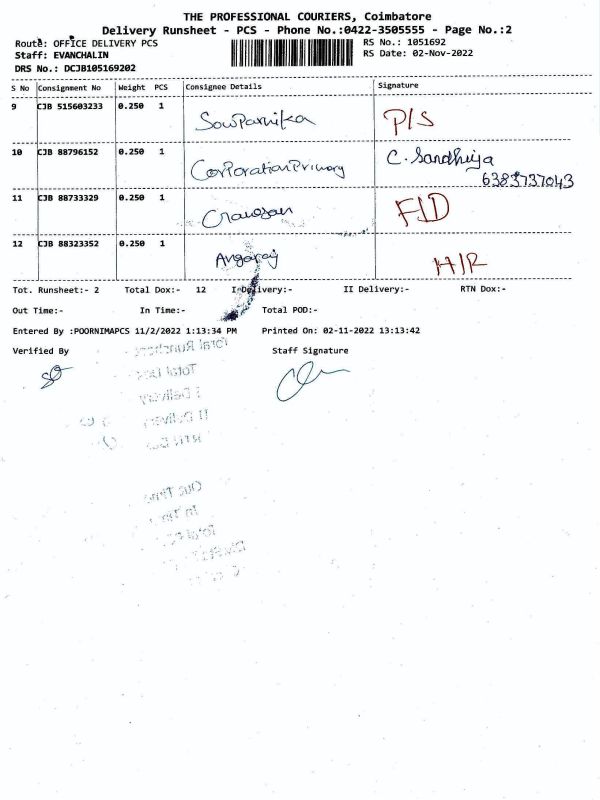 THE PROFESSIONAL COURIERS, Coimbatore
Delivery Runsheet - PCS - Phone No.:0422-3505555 - Page No.:2
Route: OFFICE DELIVERY PCS RS No.: 1051692
Staff: EVANCHALIN RS Date: 02-Nov-2022
DRS No.: DCJB105169202
S No Consignment No Weight PCS Consignee Details Signature
9 CJB 515603233 0.250 1 SowParnika P/S
10 CJB 88796152 0.250 1 CorporationPrimary C. Sandhiya
6383737043
11 CJB 88733329 0.250 1
12 CJB 88323352 0.250 1 Angaraj H/R
Tot. Runsheet:- 2 Total Dox:- 12 I-Delivery:- II Delivery:- RTN Dox:-
Out Time:- In Time:- Total POD:-
Entered By :POORNIMAPCS 11/2/2022 1:13:34 PM Printed On: 02-11-2022 13:13:42
Verified By Staff Signature
Total Runsheet
Total Dox
I Delivery
II Delivery
Out Time
In Time